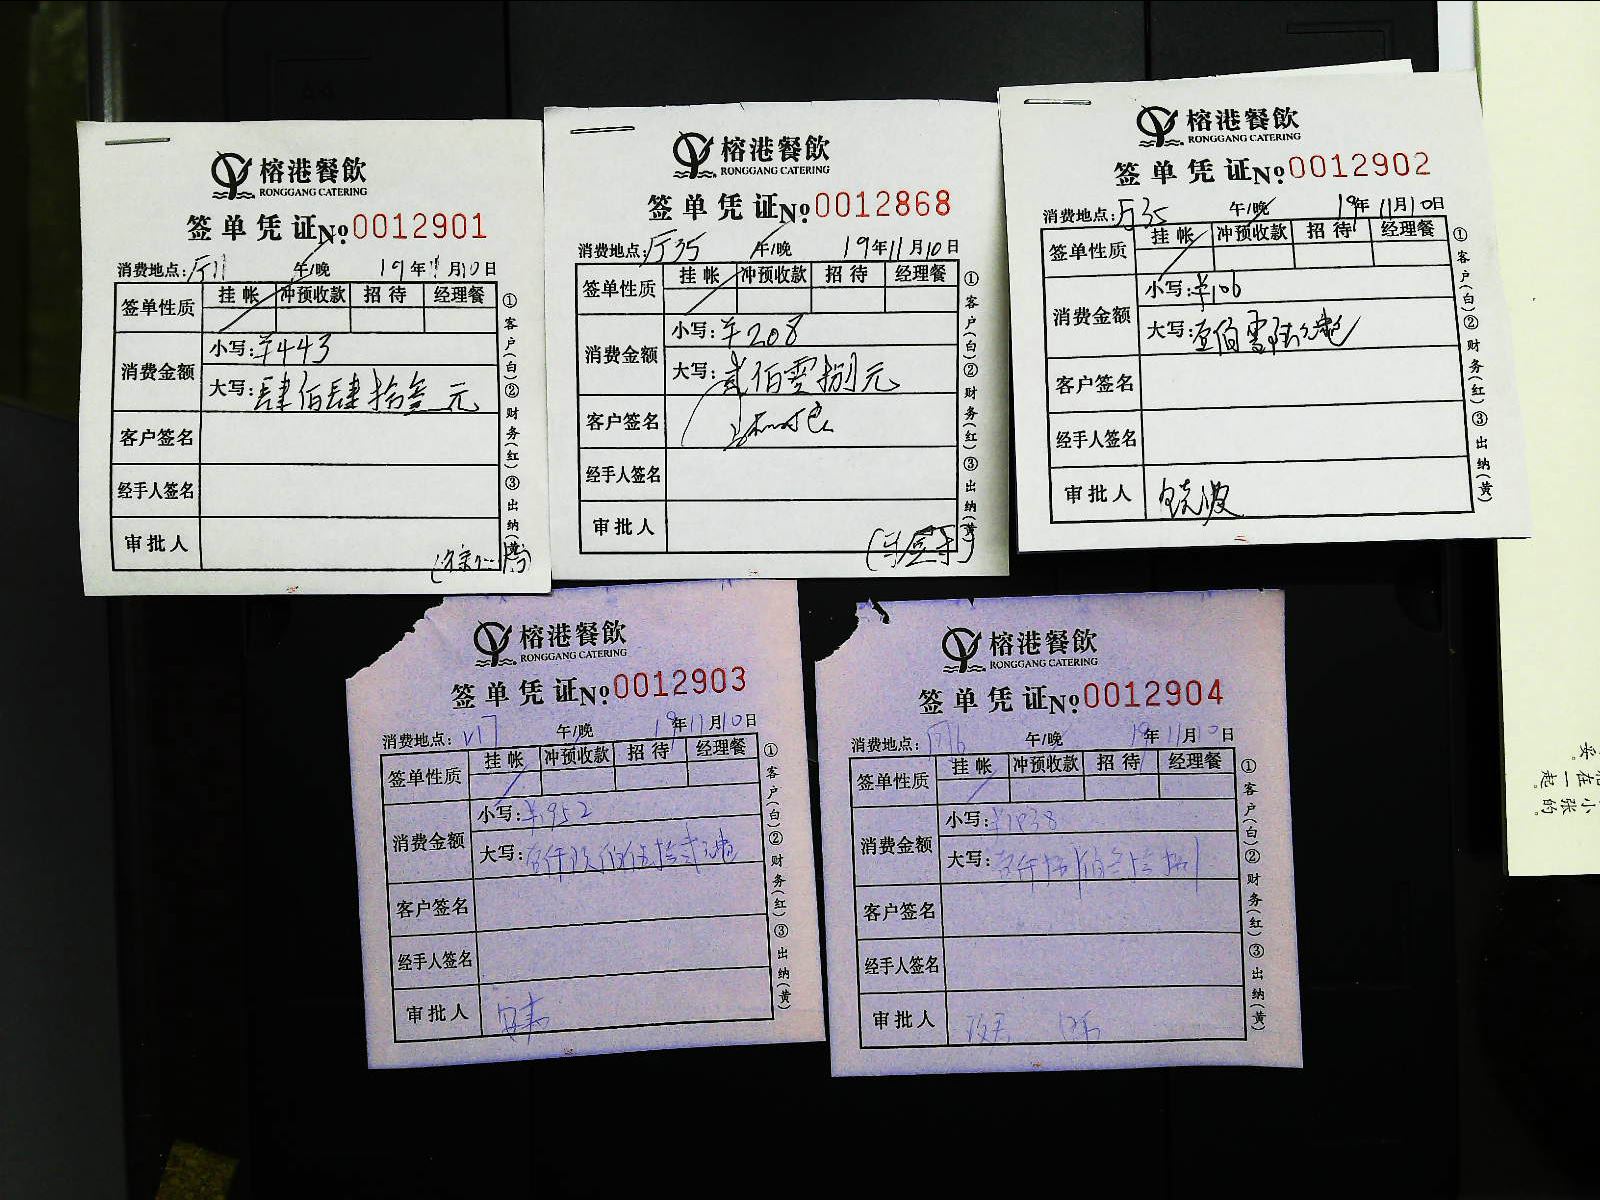 榕港餐飲
RONGGANG CATERING
签单凭证No.0012901
消费地点:厅11 午/晚 19年11月10日
签单性质 挂帐 冲预收款 招待 经理餐
消费金额 小写:¥443
大写:肆佰肆拾叁元
客户签名
经手人签名
审批人
①客户(白)②财务(红)③出纳(黄)
榕港餐飲
RONGGANG CATERING
签单凭证No.0012868
消费地点:厅35 午/晚 19年11月10日
签单性质 挂帐 冲预收款 招待 经理餐
消费金额 小写:¥208
大写:贰佰零捌元
客户签名
经手人签名
审批人
①客户(白)②财务(红)③出纳(黄)
榕港餐飲
RONGGANG CATERING
签单凭证No.0012902
消费地点:厅35 午/晚 19年11月10日
签单性质 挂帐 冲预收款 招待 经理餐
消费金额 小写:¥106
大写:壹佰零陆元
客户签名
经手人签名
审批人
①客户(白)②财务(红)③出纳(黄)
榕港餐飲
RONGGANG CATERING
签单凭证No.0012903
消费地点:V17 午/晚 19年11月10日
签单性质 挂帐 冲预收款 招待 经理餐
消费金额 小写:
大写:
客户签名
经手人签名
审批人
①客户(白)②财务(红)③出纳(黄)
榕港餐飲
RONGGANG CATERING
签单凭证No.0012904
消费地点: 午/晚 19年11月10日
签单性质 挂帐 冲预收款 招待 经理餐
消费金额 小写:¥1838
大写:壹仟捌佰叁拾捌
客户签名
经手人签名
审批人
①客户(白)②财务(红)③出纳(黄)